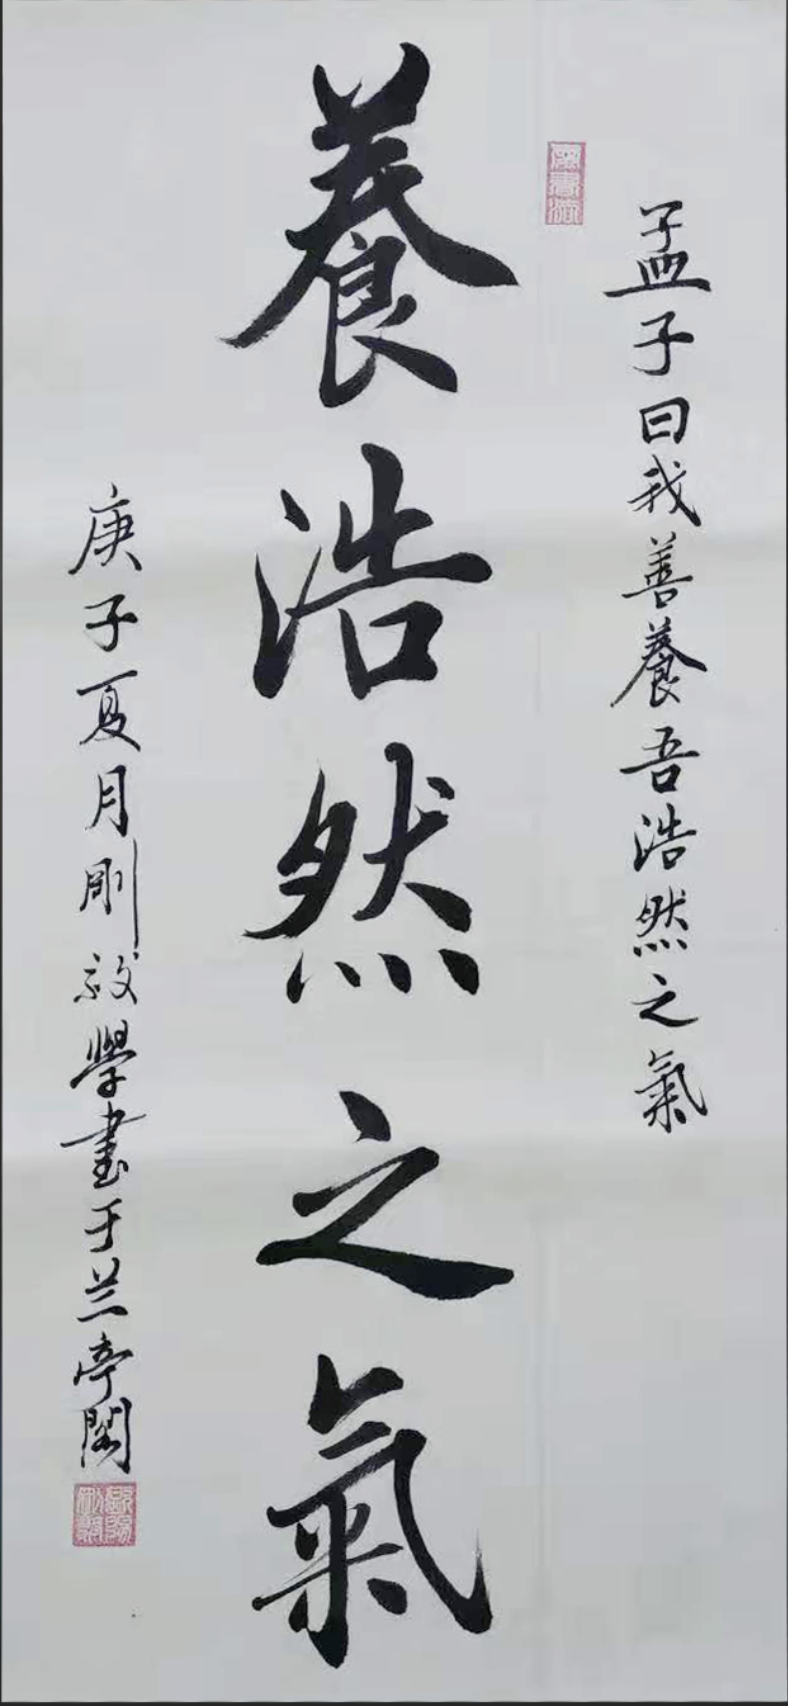 孟子曰我善養吾浩然之氣
養浩然之氣
庚子夏月剛敬學書于兰亭閣